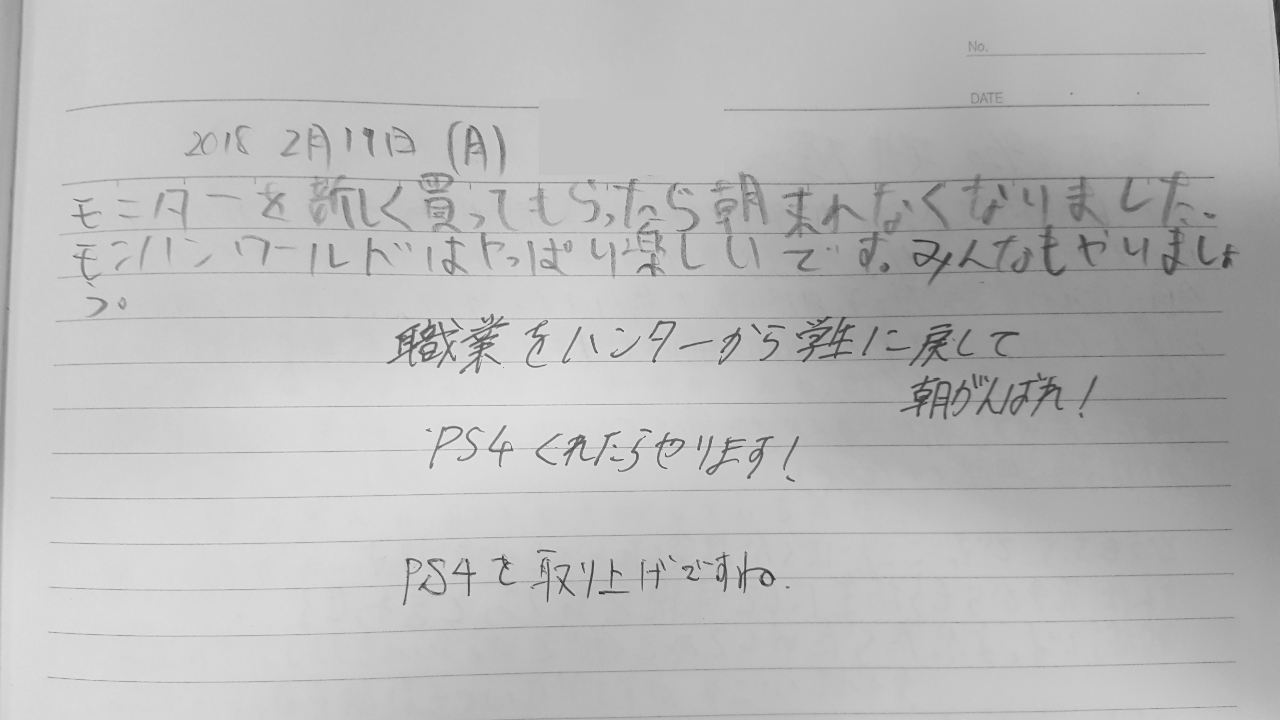 No.
DATE
2018 2月19日 (月)
モニターを新しく買ってもらったら朝来れなくなりました。
モンハンワールドはやっぱり楽しいです。みんなもやりましょ
う。
職業をハンターから学生に戻して
朝がんばれ!
PS4くれたらやります!
PS4を取り上げですね.